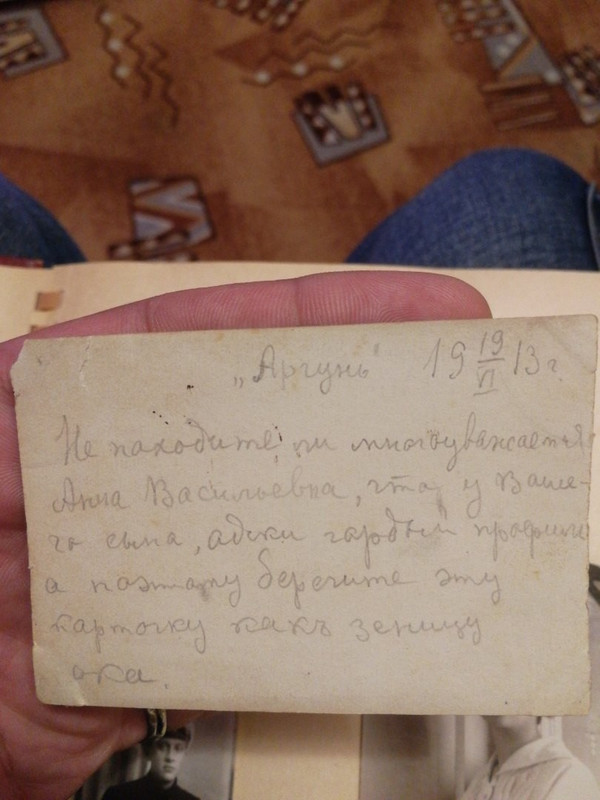 „Аргунь" 19 19/VI 13 г.
Не находите, ли многоуважаемая
Анна Васильевна, что у Ваше-
го сына, адски гордый профиль
а поэтому берегите эту
карточку какъ зеницу
ока.